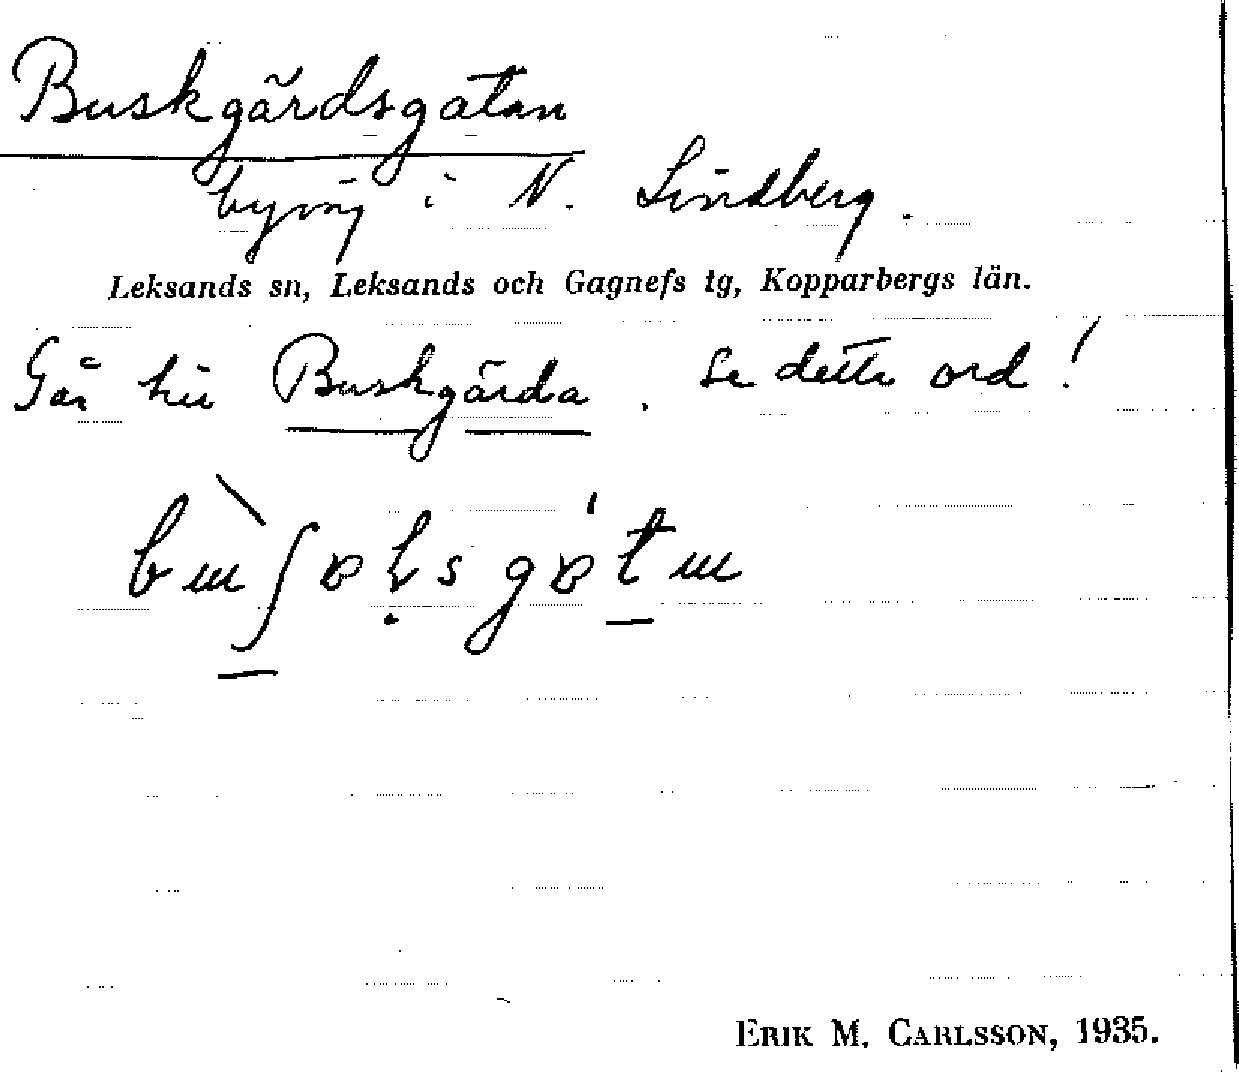 Buskgårdsgatan
byväg i N. Lindberg.
Leksands sn, Leksands och Gagnefs tg, Kopparbergs län.
Går till Buskgårda. Se detta ord!
ERIK M. CARLSSON, 1935.